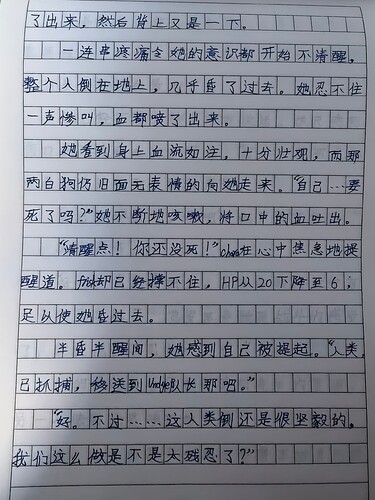 了出来，然后背上又是一下。
一连串疼痛令她的意识都开始不清醒，
整个人倒在地上，几乎昏了过去。她忍不住
一声惨叫，血都喷了出来。
她看到身上血流如注，十分壮观，而那
两白狗仍旧面无表情的向她走来。“自己……要
死了吗？”她不断地咳嗽，将口中的血吐出。
“清醒点！你还没死！”Chara在心中焦急地提
醒道。frisk却已经撑不住，HP从20下降至6；
足以使她昏过去。
半昏半醒间，她感到自己被提起。“人类
已抓捕，移送到Undyne队长那吧。”
“好。不过……这人类倒还是很坚毅的，
我们这么做是不是太残忍了？”